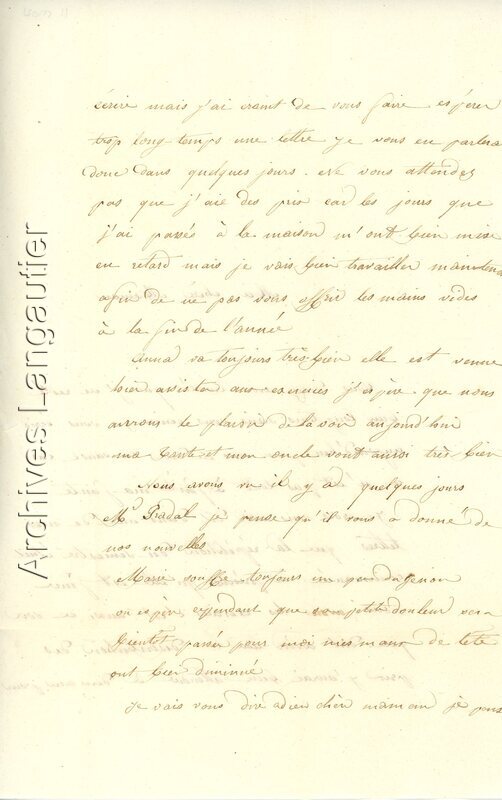 écrire mais j'ai craint de vous faire espérer
trop long temps une lettre je vous en parlera
donc dans quelques jours. Ne vous attendez
pas que j'aie des prix car les jours que
j'ai passés à la maison m'ont bien mise
en retard mais je vais bien travailler maintena
afin de ne pas vous offrir les mains vides
à la fin de l'année
Anna va toujours très bien elle est venue
hier assister aux exercices j'espère que nous
aurons le plaisir de la voir aujourd'hui
ma tante et mon oncle vont aussi très bien
Nous avons vu il y a quelques jours
Mr Pradal je pense qu'il vous a donné de
nos nouvelles
Marie souffre toujours un peu du genou
on espère cependant que sa petite douleur sera
bientôt passée pour moi mes maux de tête
ont bien diminué
Je vais vous dire adieu chère maman je pens
Archives Langautier